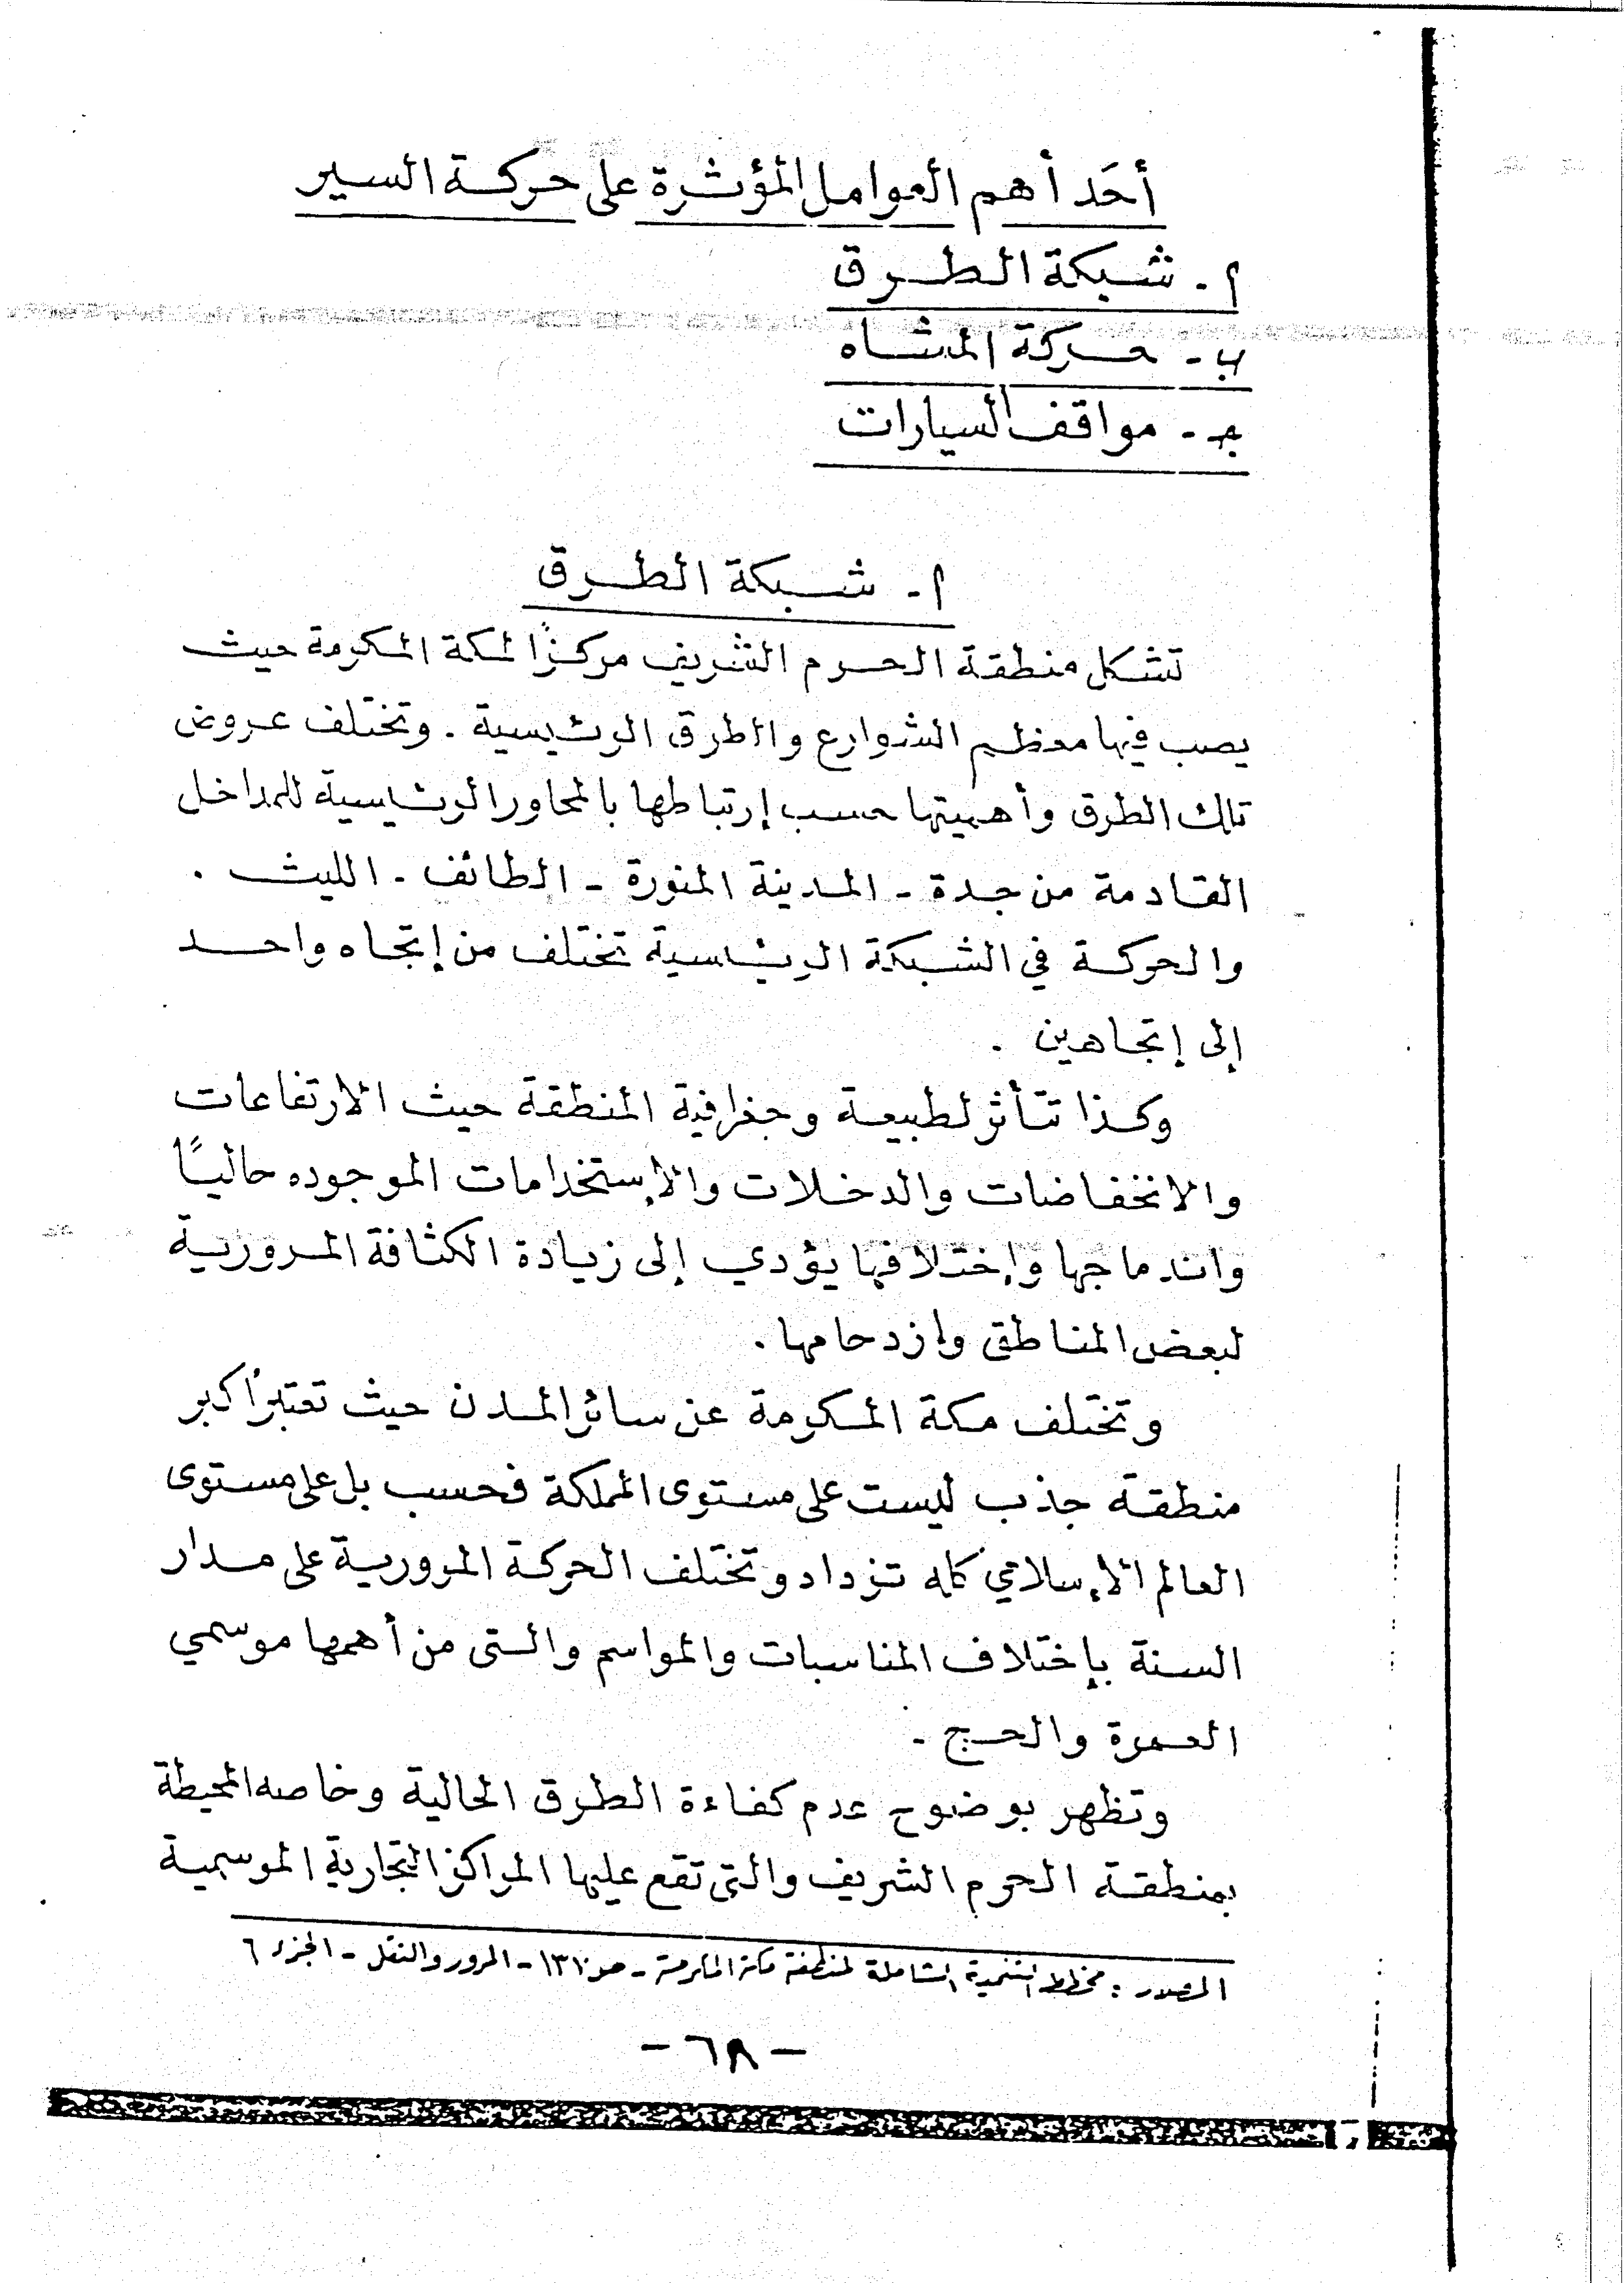 أحَد أهم العوامل المؤثرة على حركة السير
أ - شبكة الطرق
ب - حركة المشاه
جـ - مواقف السيارات
أ - شبكة الطرق
تشكل منطقة الحرم الشريف مركزًا لمكة المكرمة حيث
يصب فيها معظم الشوارع والطرق الرئيسية . وتختلف عروض
تلك الطرق وأهميتها حسب إرتباطها بالمحاور الرئاسية للمداخل
القادمة من جدة - المدينة المنورة - الطائف - الليث .
والحركة في الشبكة الرئاسية تختلف من إتجاه واحد
إلى إتجاهين .
وكذا تتأثر لطبيعة وجغرافية المنطقة حيث الارتفاعات
والانخفاضات والدخلات والإستخدامات الموجوده حاليًا
واندماجها وإختلافها يؤدي إلى زيادة الكثافة المرورية
لبعض المناطق وإزدحامها .
وتختلف مكة المكرمة عن سائر المدن حيث تعتبر أكبر
منطقة جذب ليست على مستوى المملكة فحسب بل على مستوى
العالم الإسلامي كله تزداد وتختلف الحركة المرورية على مدار
السنة بإختلاف المناسبات والمواسم والتى من أهمها موسمي
العمرة والحج .
وتظهر بوضوح عدم كفاءة الطرق الحالية وخاصه المحيطة
بمنطقة الحرم الشريف والتى تقع عليها المراكز التجارية الموسمية
المصدر : مخطط التنمية الشاملة لمنطقة مكة المكرمة - ص ١٣١ - المرور والنقل - الجزء ٦
- ٦٨ -